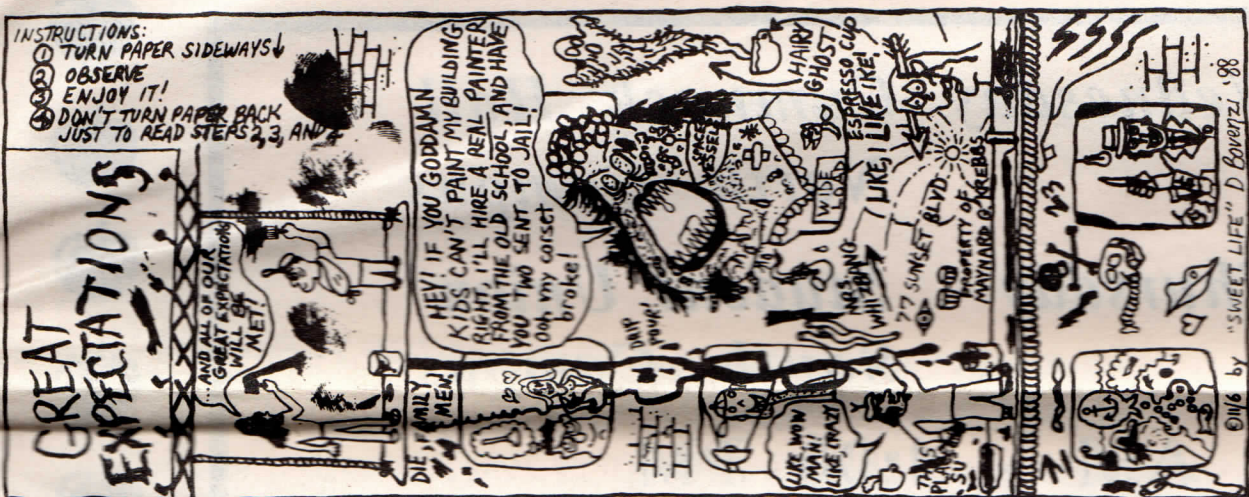 INSTRUCTIONS:
① TURN PAPER SIDEWAYS↓
② OBSERVE
③ ENJOY IT!
④ DON'T TURN PAPER BACK
JUST TO READ STEPS 2,3, AND
GREAT
EXPECTATIONS
...AND ALL OF OUR
GREAT EXPECTATIONS
WILL BE
MET!
HEY! IF YOU GODDAMN
KIDS CAN'T PAINT MY BUILDING
RIGHT, I'LL HIRE A REAL PAINTER
FROM THE OLD SCHOOL, AND HAVE
YOU TWO SENT TO JAIL!
Ooh my corset
broke!
DIE, FAMILY
MEN!
DRIP
POUR!
SPACE
VESSELS
WIDE
LOAD
HAIRY
GHOST!
ESPRESSO CUP
LIKE, I LIKE IKE!
MRS.
WILTBANC
77 SUNSET BLVD
PROPERTY OF
MAYNARD G. KREBAS
LIKE, WOW
MAN!
LIKE, CRAZY
THIS
PLACE
SU
©11/6 by "SWEET LIFE" D Bovenzi '88